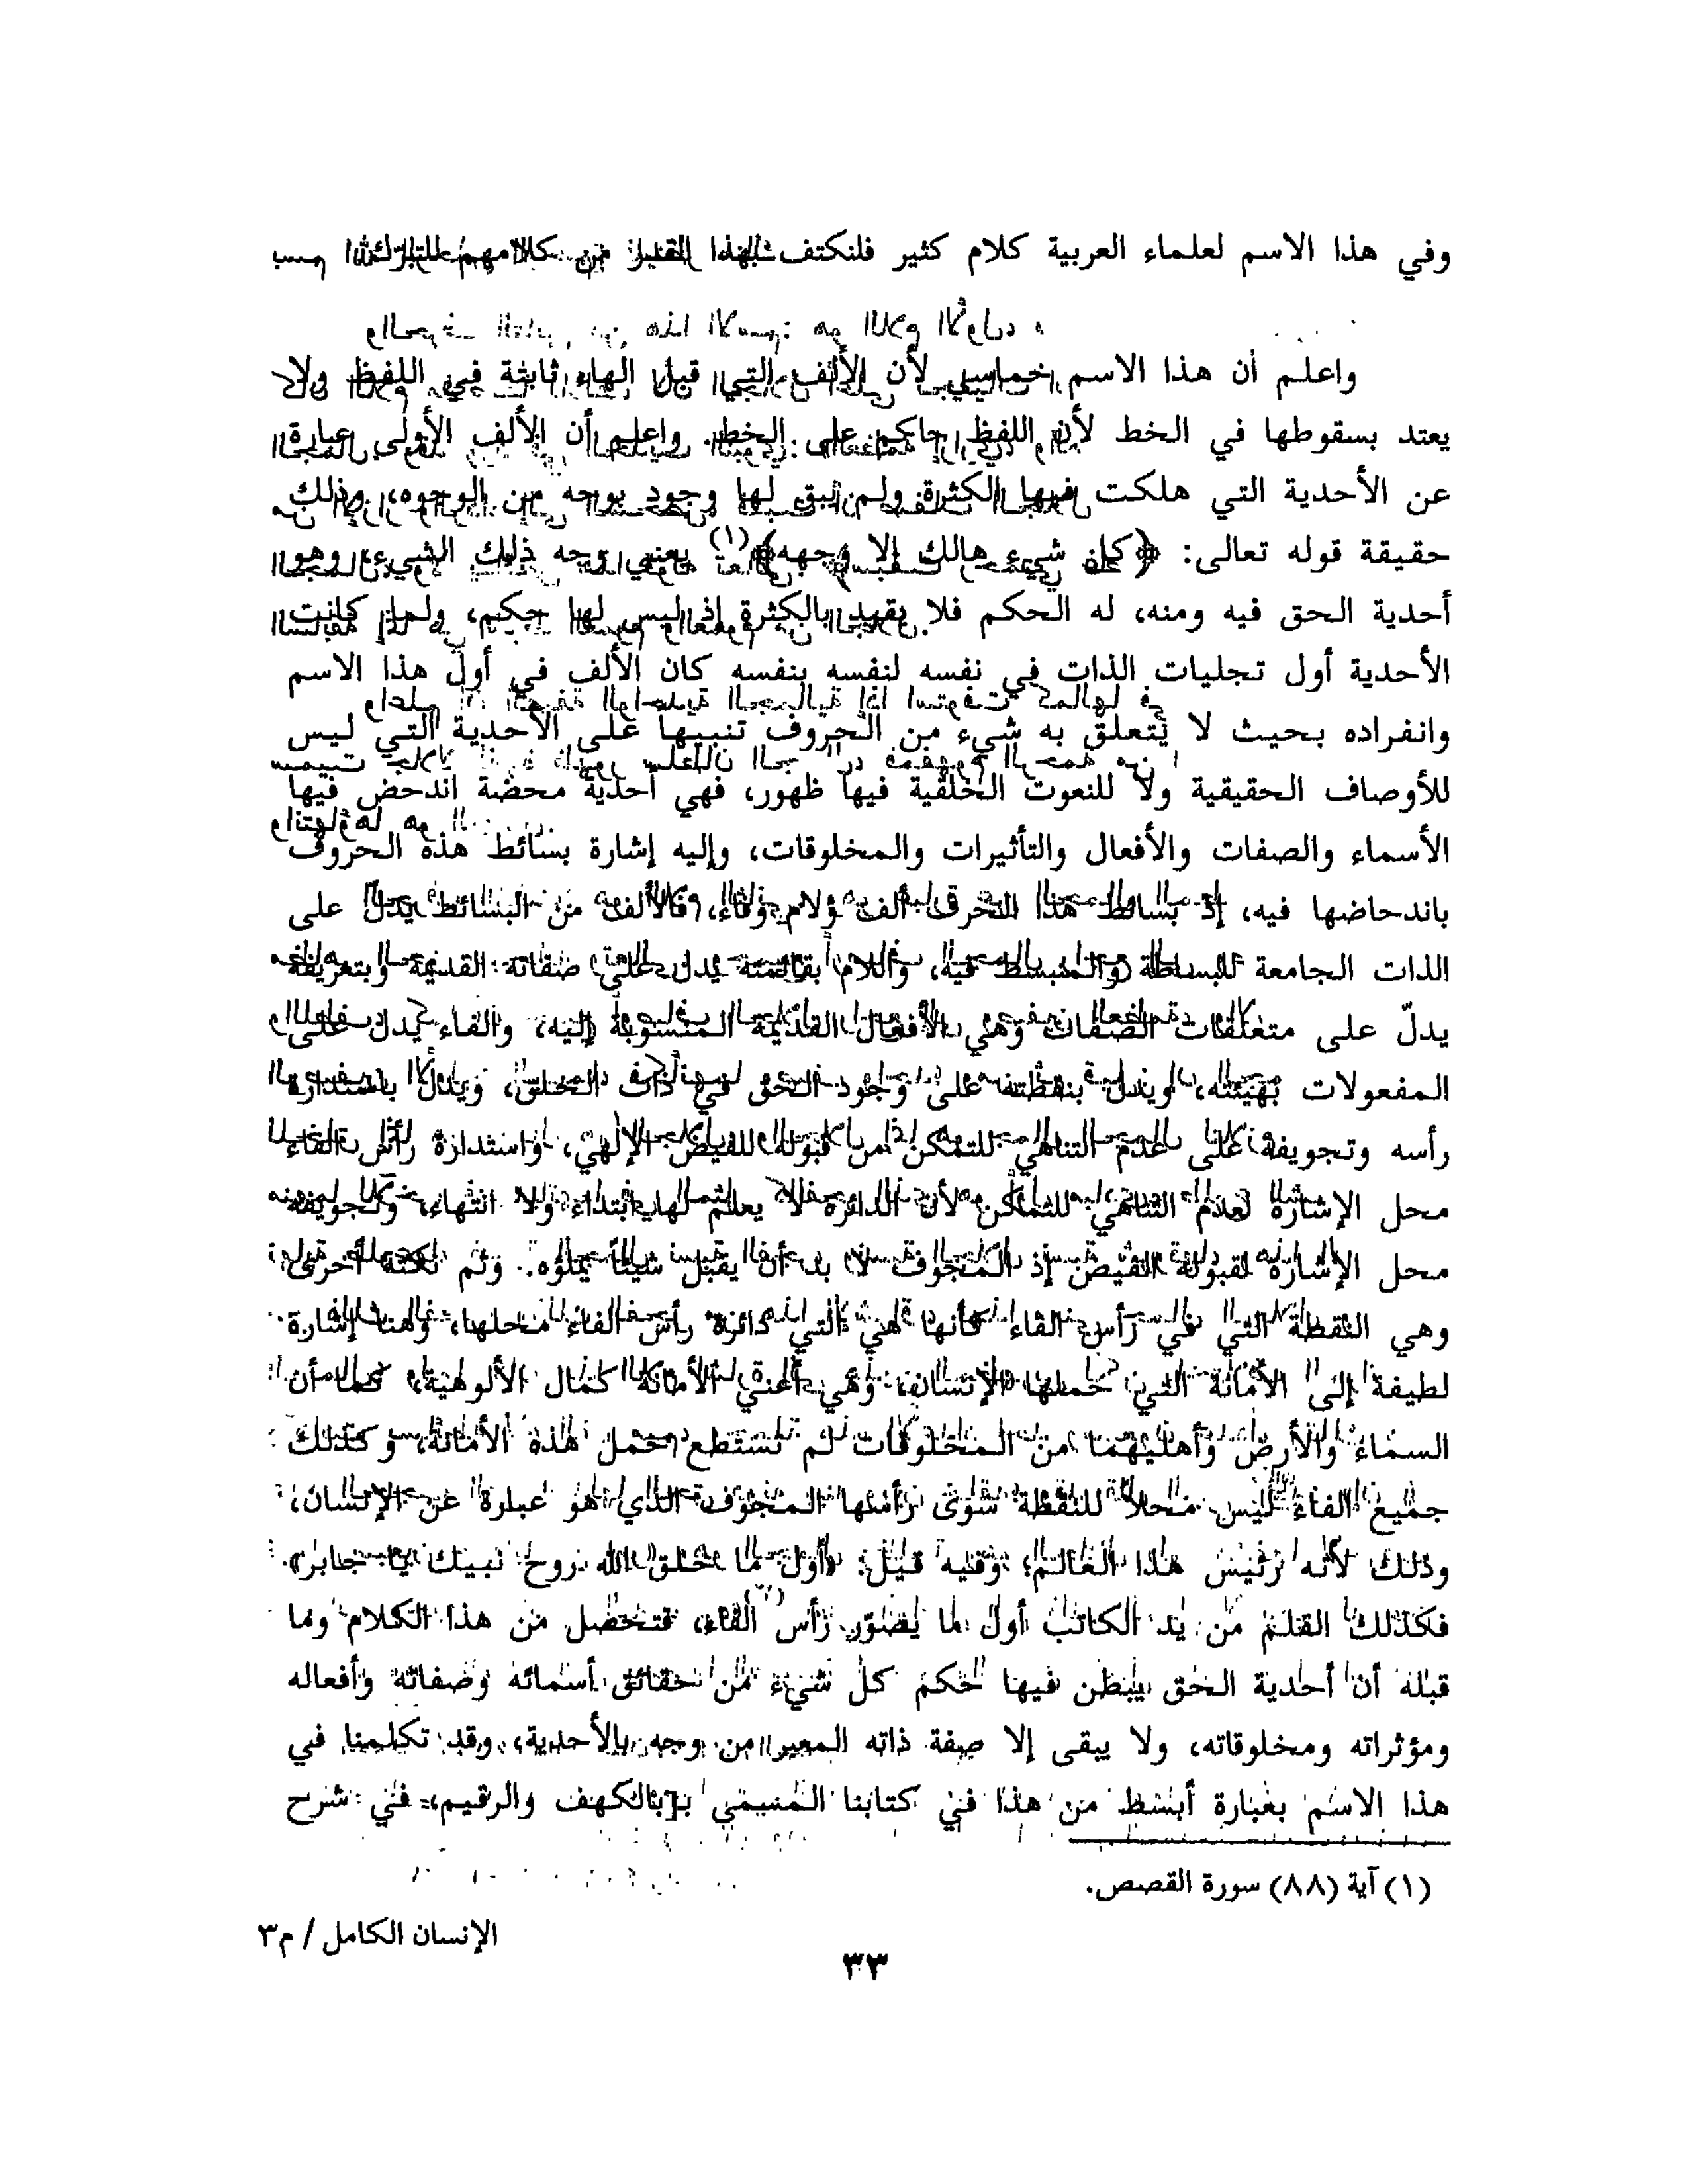 وفي هذا الاسم لعلماء العربية كلام كثير فلنكتف بهذا القدر من كلامهم للتبرك
واعلم أن هذا الاسم خماسي لأن الألف التي قبل الهاء ثابتة في اللفظ ولا
يعتد بسقوطها في الخط لأن اللفظ حاكم على الخط. واعلم أن الألف الأولى عبارة
عن الأحدية التي هلكت فيها الكثرة ولم يبق لها وجود بوجه من الوجوه، وذلك
حقيقة قوله تعالى: ﴿كل شيء هالك إلا وجهه﴾(١) يعني وجه ذلك الشيء، وهو
أحدية الحق فيه ومنه، له الحكم فلا يقيد بالكثرة إذ ليس لها حكم، ولما كانت
الأحدية أول تجليات الذات في نفسه لنفسه بنفسه كان الألف في أول هذا الاسم
وانفراده بحيث لا يتعلق به شيء من الحروف تنبيهاً على الأحدية التي ليس
للأوصاف الحقيقية ولا للنعوت الخلقية فيها ظهور، فهي أحدية محضة اندحض فيها
الأسماء والصفات والأفعال والتأثيرات والمخلوقات، وإليه إشارة بسائط هذه الحروف
باندحاضها فيه، إذ بسائط هذا الحرف ألف ولام وفاء، فالألف من البسائط يدلّ على
الذات الجامعة للبساطة والمنبسط فيه، واللام بقائمته يدل على صفاته القديمة وبتعريفه
يدلّ على متعلقات الصفات وهي الأفعال القديمة المنسوبة إليه، والفاء يدل على
المفعولات بهيئته، ويدل بنقطته على وجود الحق في ذات الخلق، ويدل باستدارة
رأسه وتجويفه على عدم التناهي للتمكن من قبوله للفيض الإلهي، واستدارة رأس الفاء
محل الإشارة لعدم التناهي للتمكن لأن الدائرة لا يعلم لها ابتداء ولا انتهاء، وتجويفه
محل الإشارة لقبوله الفيض إذ المجوف لا بد أن يقبل شيئاً يملؤه. وثم نكتة أخرى
وهي النقطة التي في رأس الفاء كأنها هي التي دائرة رأس الفاء محلها، وهنا إشارة
لطيفة إلى الأمانة التي حملها الإنسان، وهي أعني الأمانة كمال الألوهية، كما أن
السماء والأرض وأهليهما من المخلوقات لم تستطع حمل هذه الأمانة، وكذلك
جميع الفاء ليس محلاً للنقطة سوى رأسها المجوف الذي هو عبارة عن الإنسان،
وذلك لأنه رئيس هذا العالم؛ وفيه قيل: «أول ما خلق الله روح نبيك يا جابر».
فكذلك القلم من يد الكاتب أول ما يصوّر رأس الفاء، فتحصل من هذا الكلام وما
قبله أن أحدية الحق يبطن فيها حكم كل شيء من حقائق أسمائه وصفاته وأفعاله
ومؤثراته ومخلوقاته، ولا يبقى إلا صفة ذاته المعبر من وجه بالأحدية، وقد تكلمنا في
هذا الاسم بعبارة أبسط من هذا في كتابنا المسمى بـ[بالكهف والرقيم، في شرح
(١) آية (٨٨) سورة القصص.
الإنسان الكامل / م٣
٣٣